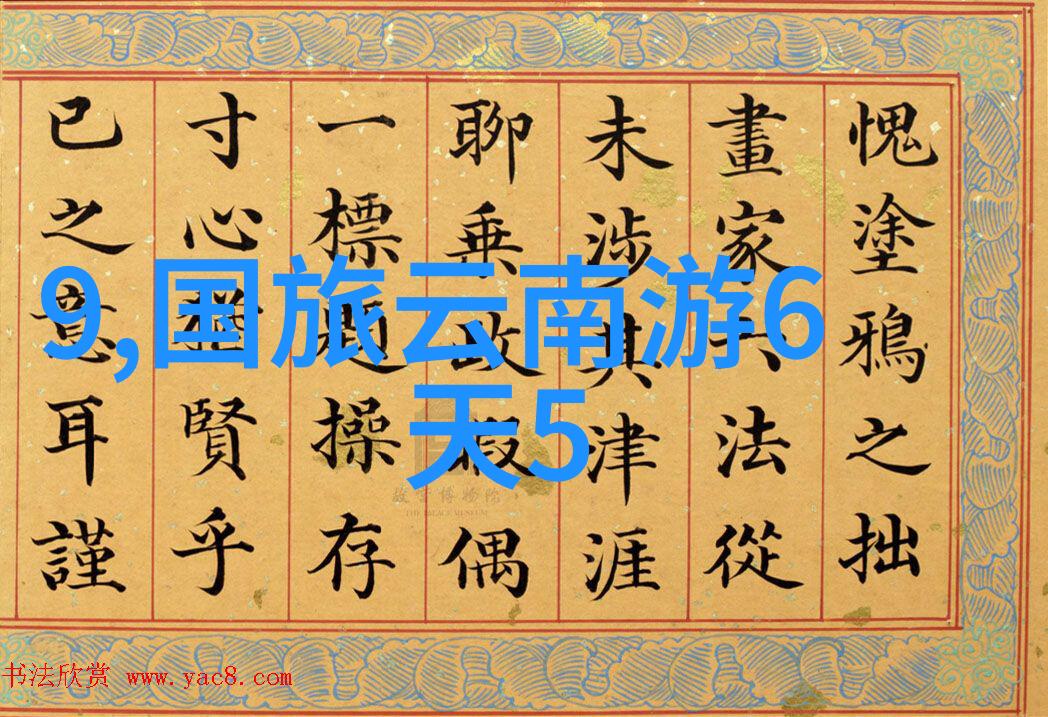 愧塗鴉之拙
畫家六法從
未涉其津涯
聊乗政暇偶
一標題操存
寸心猶賢乎
已之意耳謹
9,国旅云南游6
天5
故宫博物院
THE PALACE MUSEUM
书法欣赏 www.yac8.com